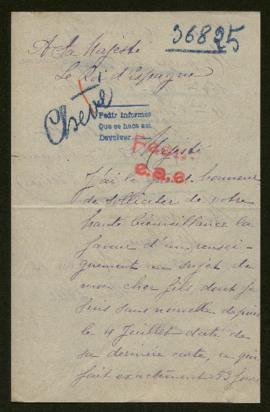 36825
A Sa Majesté
Le Roi d'Espagne
Chevé
Pedir informes
Que se haga así.
Devolver
Majesté
e.a.e.
J'ai le grand honneur
de solliciter de votre
haute bienveillance la
faveur d'un rensei-
gnement au sujet de
mon cher fils dont je
suis sans nouvelle depuis
le 4 Juillet date de
sa dernière carte, ce qui
fait exactement 53 jours